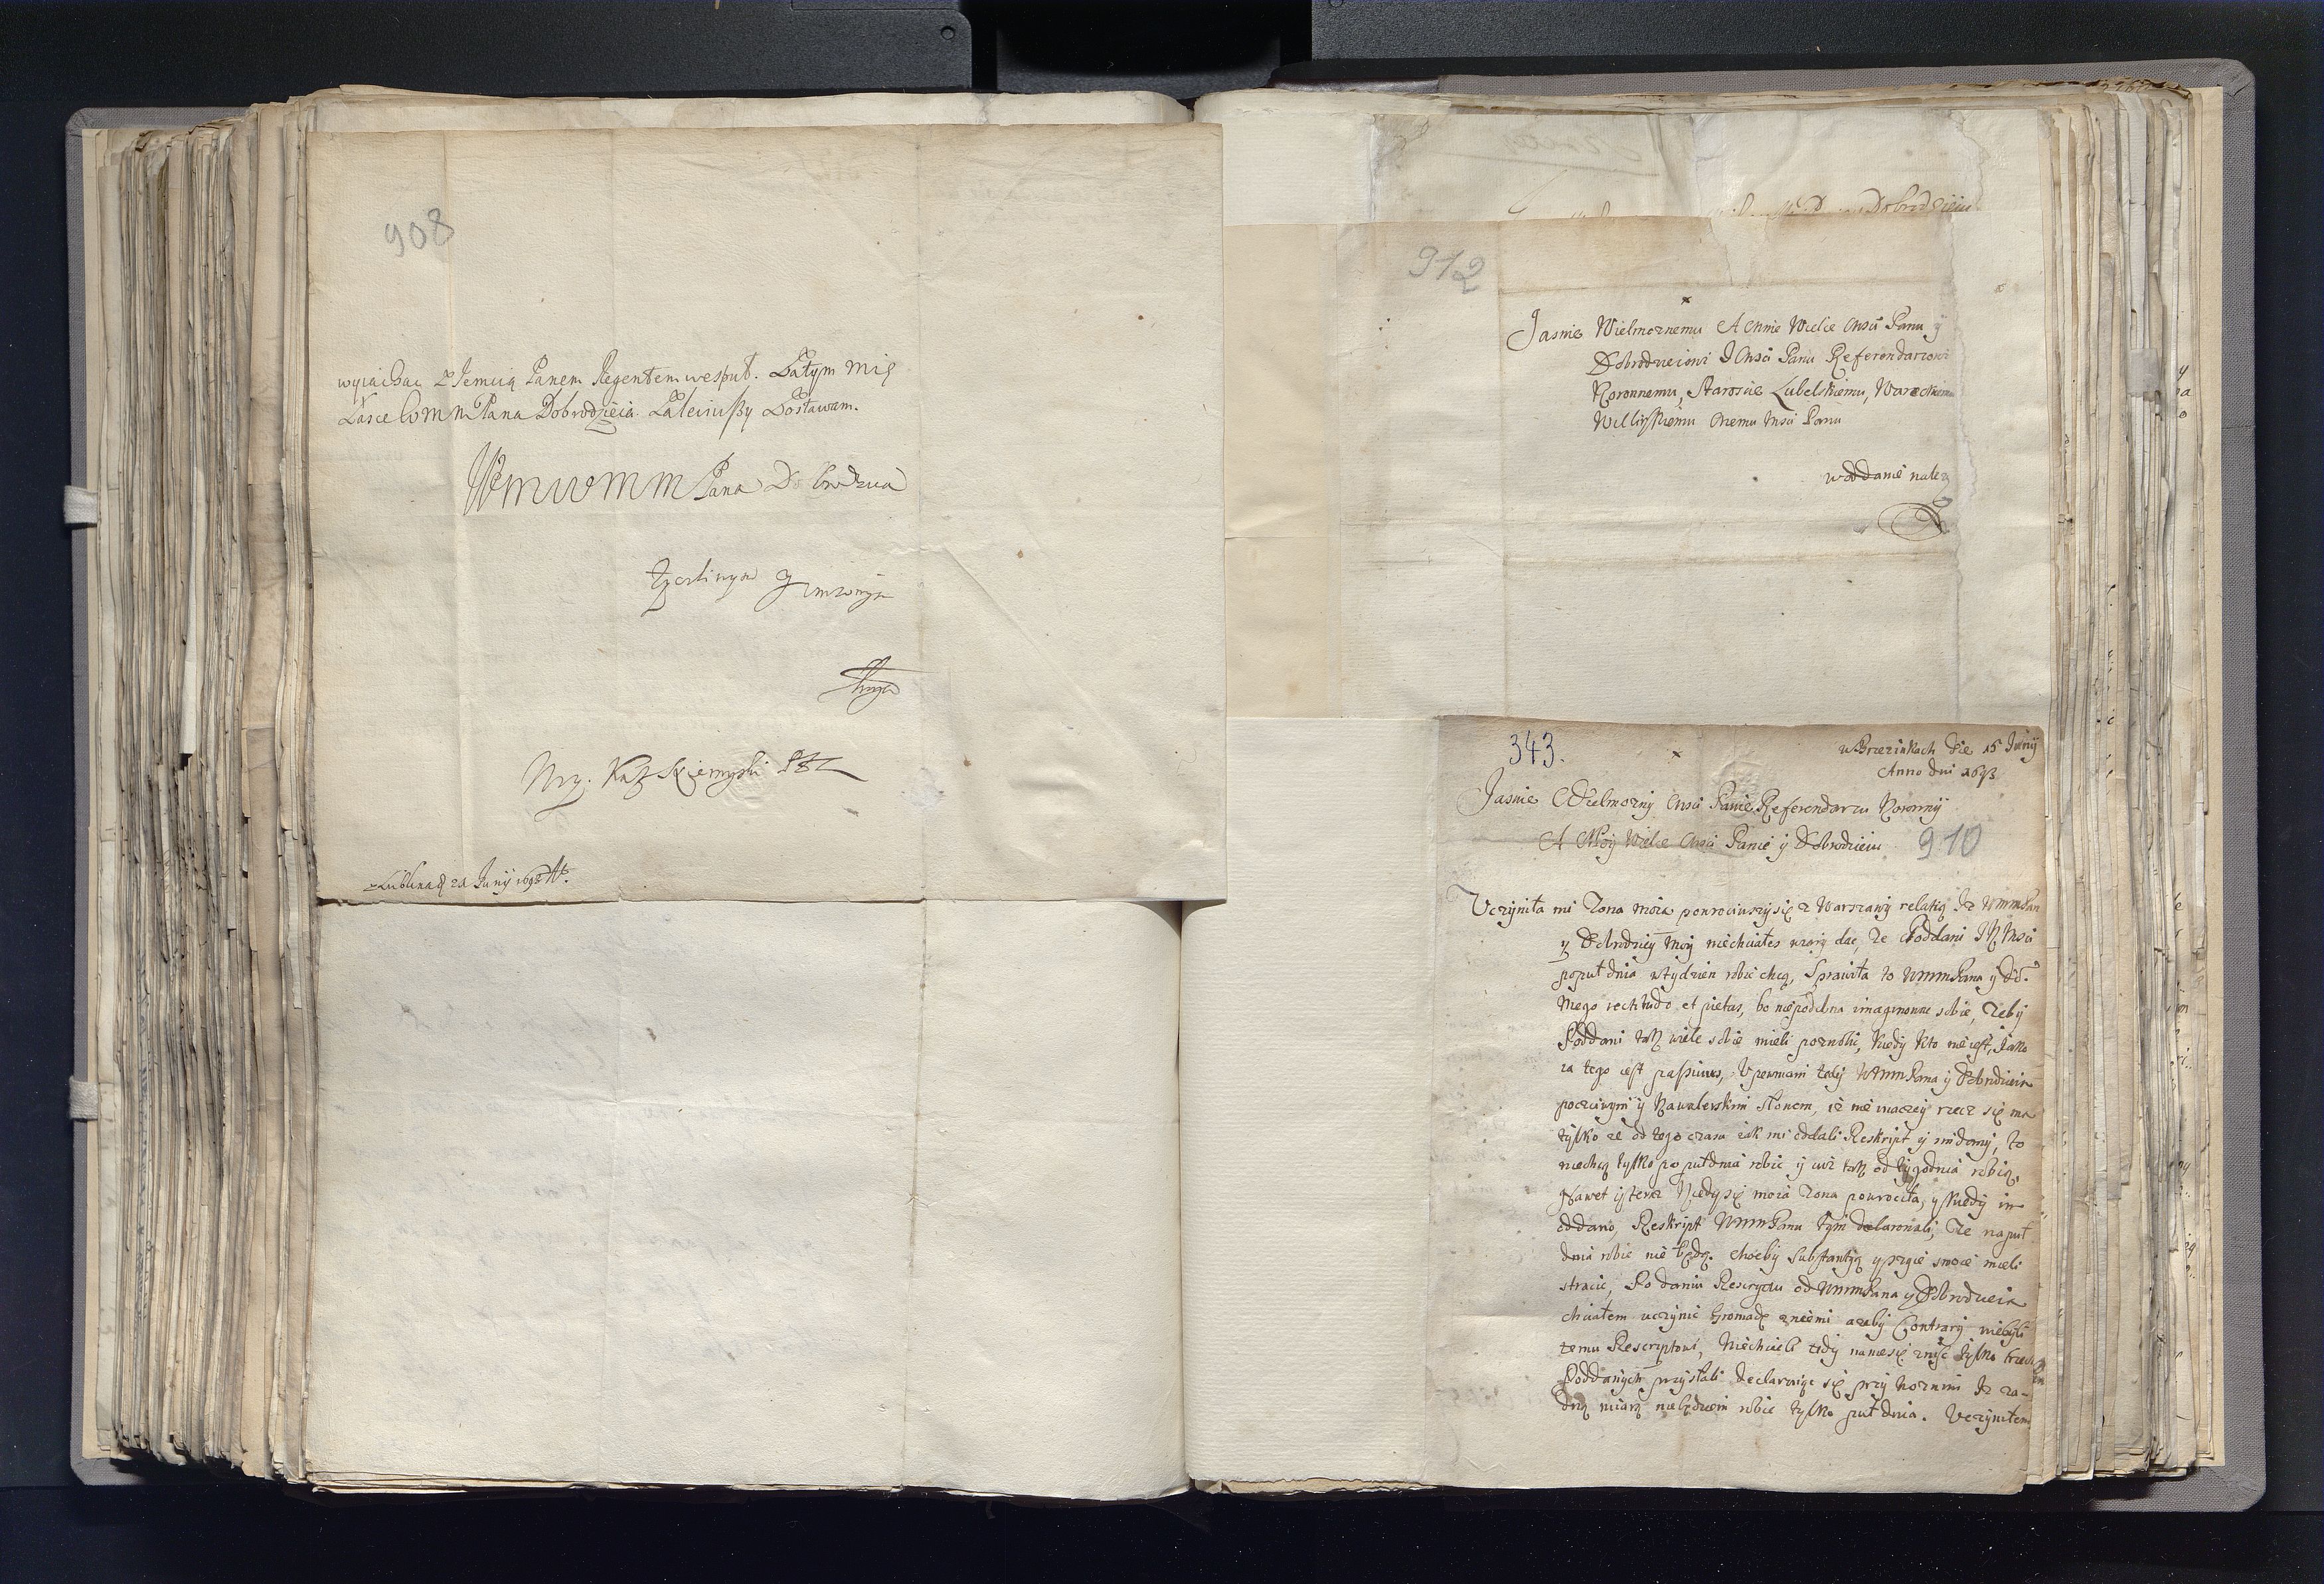 908
wyiachac z Jemcią Panem Regentem wesput. Zatym mię
Łasce WMM Pana Dobrodzieia Zaleciwszy Zostawam.
WMWMM Pana Dobrodzieia
Sługa
Z Lublina d 21 Junij 1693 A°.
Dobrodzieiu
912
Jasnie Wielmoznemu A Mnie Wielce Msci Panu y
Dobrodzieiowi J Msci Panu Referendarzowi
Koronnemu, Staroscie Lubelskiemu, Wareckiemu
Memu Msci Panu
w oddanie należy
343.
w Brzezinkach Die 15 Junij
Anno Dni 1693
Jasnie Wielmozny Msci Panie Referendarzu Koronny
A Moy Wielce Msci Panie y Dobrodzieiu
910
Uczyniła mi Zona moia powrociwszy się z Warszawy relatią Iz WMMPan
y Dobrodziey Moy niechciałes wiary dac, Ze Poddani Msci
popuł dnia w tydzien robic chcą, Sprawiła to WMMPana y Do.
Mego rectitudo et pietas, bo niepodobna sobie, Zeby
Poddani tak wiele sobie mieli pozwolic, kiedy kto nie iest, iako
ia tego iest passivus, Upewniam tedy WMMPana y Dobrodzieia
poczciwym y Kawalerskim słowem, iz nie inaczey rzecz się ma
tylko ze od tego czasu iak mi oddali Reskript y to
niechcą tylko po puł dnia robic y iuz tak od tygodnia robią,
Nawet y teraz kiedy się moia Zona powrociła, y kiedy im
oddano, Reskript WMMPana tym declarowali, Ze na puł
dnia robic nie będą. chocby substantyą y zycie swoie mieli
stracic, Po daniu Rescryptu od WMMPana y Dobrodzieia
chciałem uczynic Gromadę zniemi azeby Contrarij niebyli
temu Rescryptowi, Niechcieli tedy namnie się znisc tylko trzech
Poddanych przysłali declaruiąc się przy Woznym Iz za-
dną miarą niebędziem robic tylko puł dnia. Uczyniłem